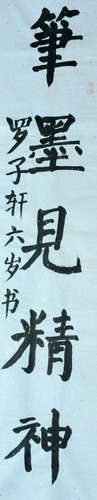 筆墨見精神
罗子轩六岁书